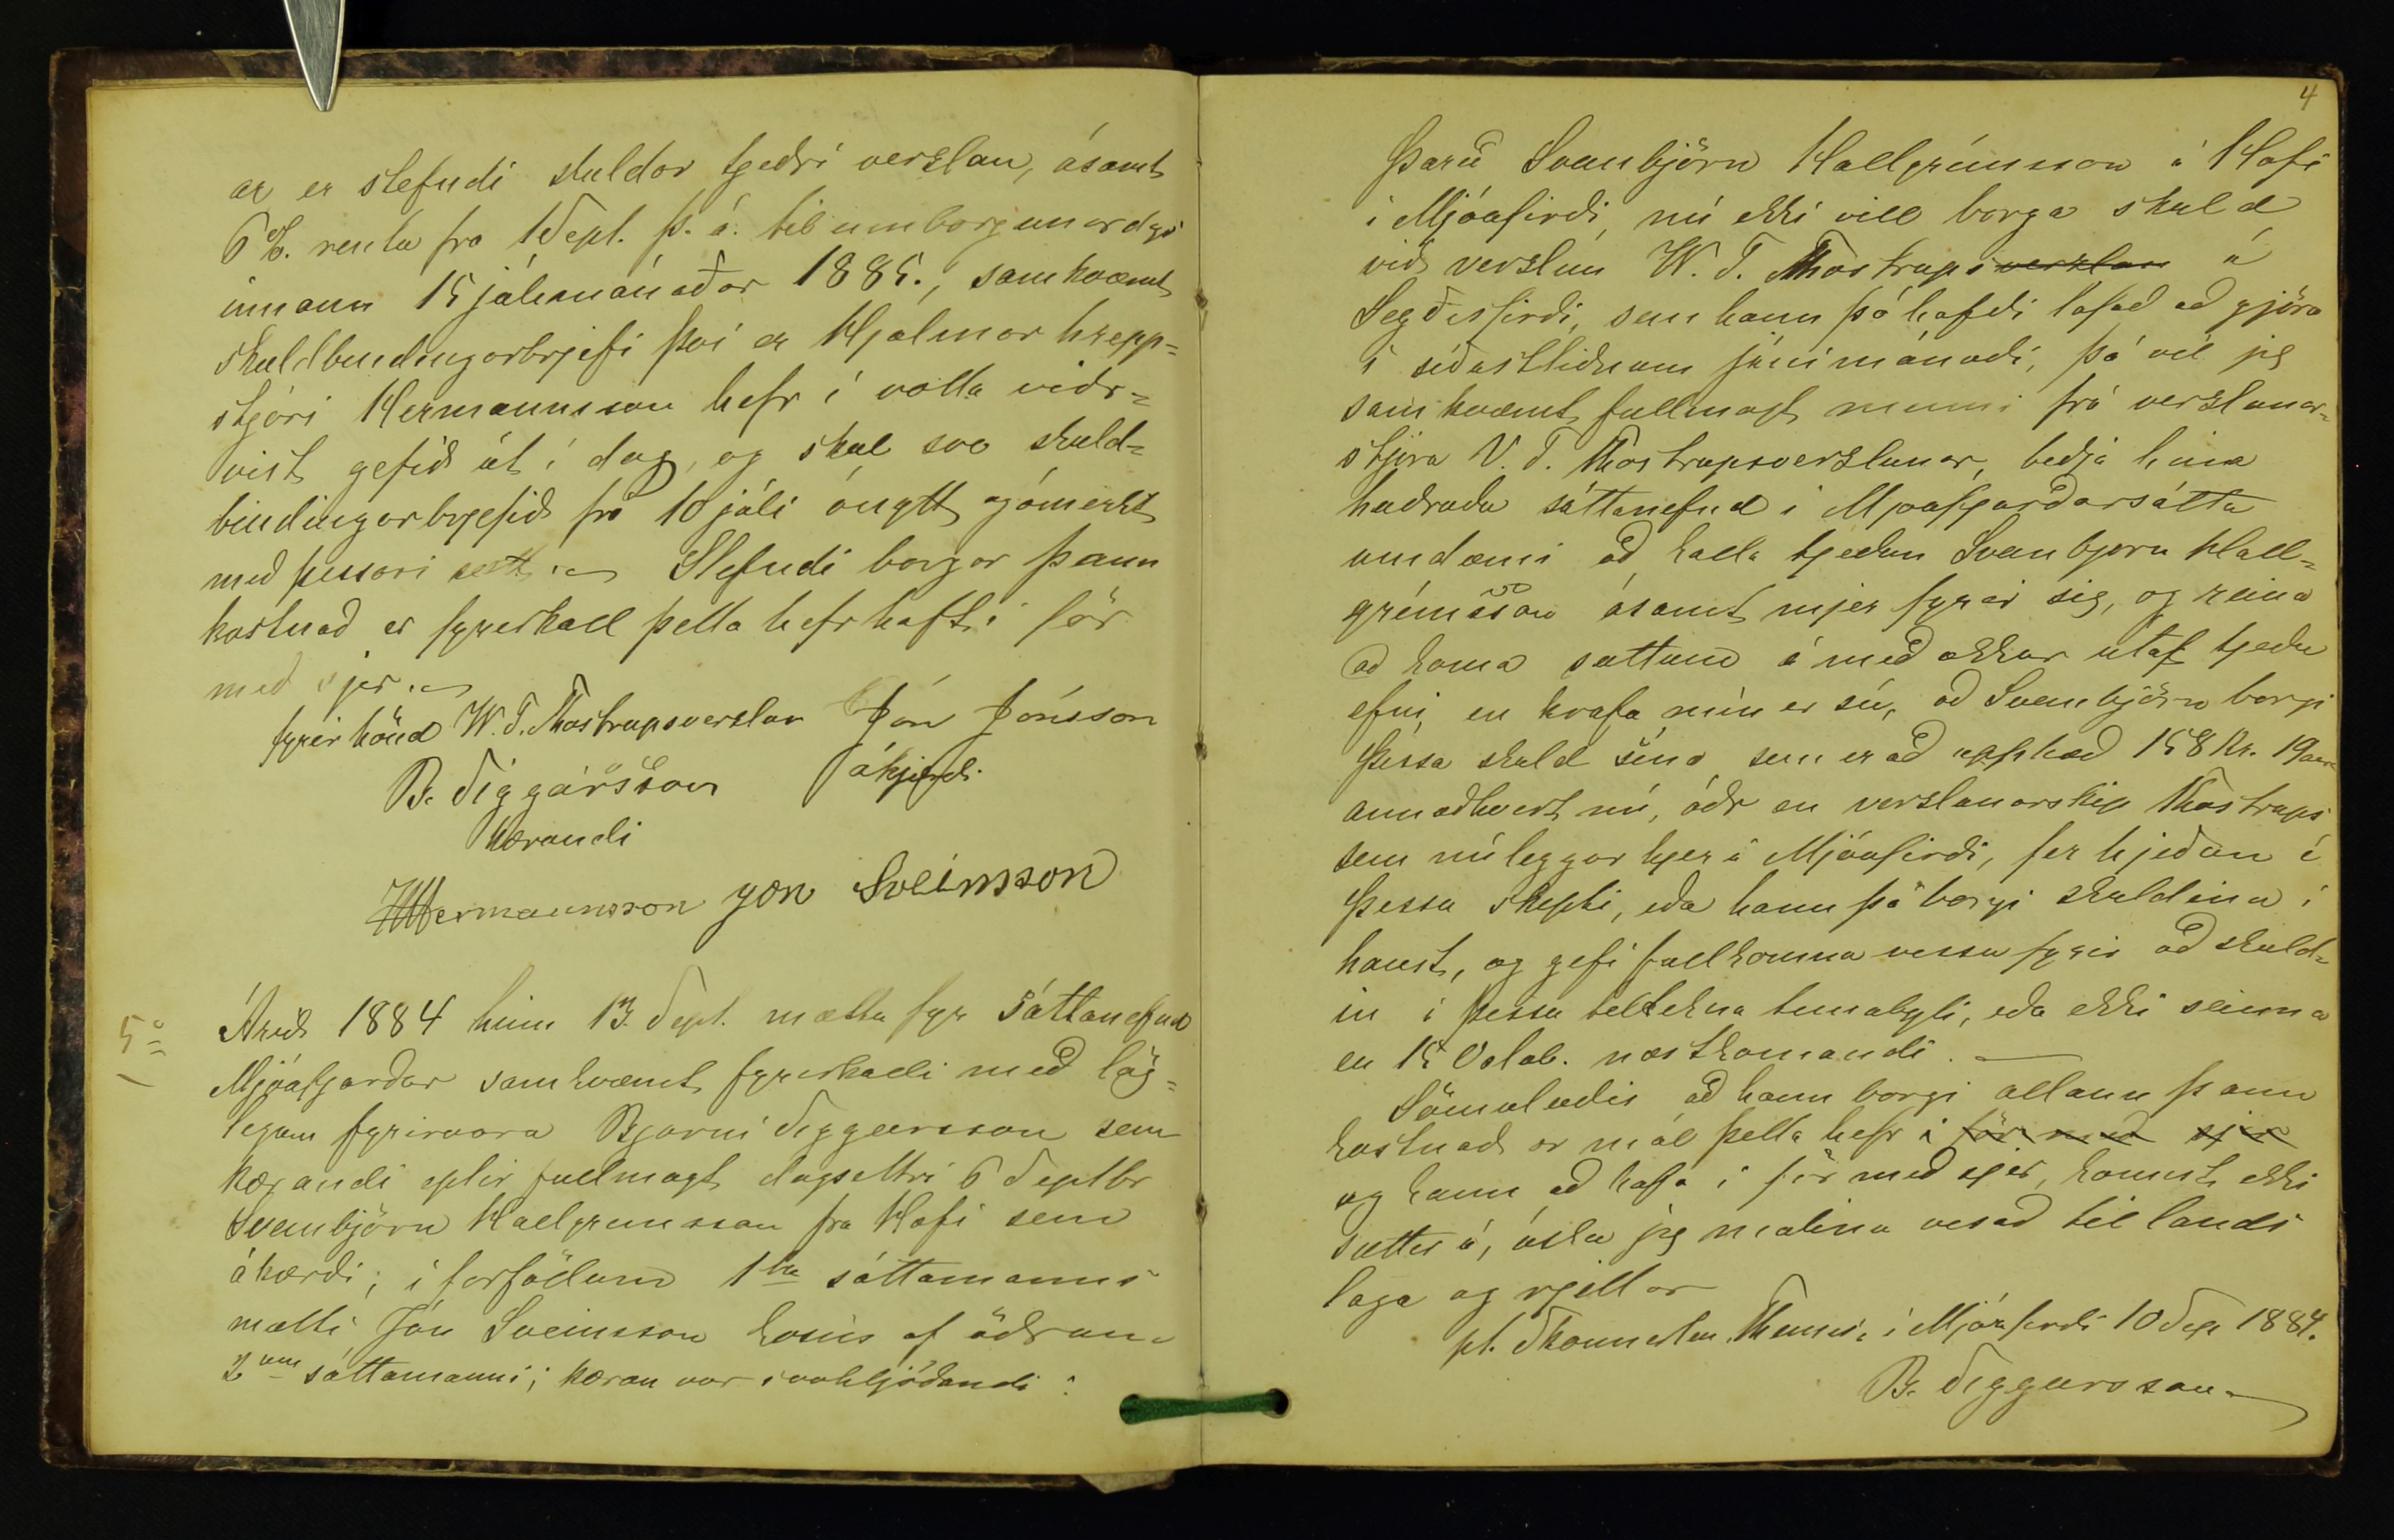 ar er stefndi skuldar tjeðri verzlan, ásamt
6%. rentu fra 1 Sept. þ. á. til umborgunardags
innann 15 júlímánaðar 1885., samkvæmt
skuldbindingarbrjefi því er Hjálmar hrepp=
stjóri Hermannsson hefr í votta viðr=
vist gefið út í dag, og skal svo skuld=
bindingarbrjefið frá 10 júli ónytt og ómerkt
með þessari sætt. Stefndi borgar þann
kostnað er fyrirkall þetta hefr haft í för
með sjer.
fyrir hönd W. T. Thostrupsverzlun Jón Jónsson
B. Siggeirsson ákjærdi
kærandi
HHermannsson Jón Sveinsson
5º Árið 1884 hinn 13. Sept. mættu fyr Sáttanefnd
Mjóafjarðar samkvæmt fyrirkalli með lög=
legum fyrirvara Bjarni Siggeirsson sem
kærandi eptir fullmagt dagsettri 6 Septbr
Sveinbjörn Hallgrimsson fra Hofi sem
ákærði; í forföllum 1ta sáttamanns
mætti Jón Sveinsson kosins af öðrum
2um sáttamanni; kæran var svohljóðandi:
4
Þarið Sveinbjörn Hallgrímsson á Hofi
í Mjóafirði, nú ekki vill borga skuld
við verzlun W. T. Thostrups verzlan á
Seyðisfirði, sem hann þó hafði lofað að gjöra
í síðastliðnum júnímánuði, þá vil jeg
samkvæmt fullmagt minni frá verzlunar=
stjóra V. T. Thostrupsverzlunar, biðja hina
heiðruðu sáttanefnd í Mjóafjarðarsátta
umdæmi að kalla tjeðan Sveinbjörn Hall=
grímsson ásamt mjer fyrir sig, og reina
að koma sættum á með okkur útaf tjeðu
efni, en krafa mín er sú, að Sveinbjörn borgi
þessa skuld sína sem er að upphæð 158 Kr. 19 aur
annaðhvert nú, áðr en verzlunarskip Thostrups
sem nú leggar hjer á Mjóafirði, fer hjeðan í
þessu skipti, eða hann þá borgi skuldina í
haust, og gefi fullkomna vissu fyrir að skuld=
in í þessu tiltekna timabyli, eða ekki seinna
en 15 Octob. næstkomandi.
Sömuleiðis að hann borgi allann þann
kostnað er mál þetta hefr í för með sjer
og kann að hafa í för með sjer, komist ekki
sættir á, óska jeg málinu vísað til lands
laga og rjettar
pt. Skonnerten Themis í Mjóafirdi 10 Sep 1884.
B. Siggeirsson